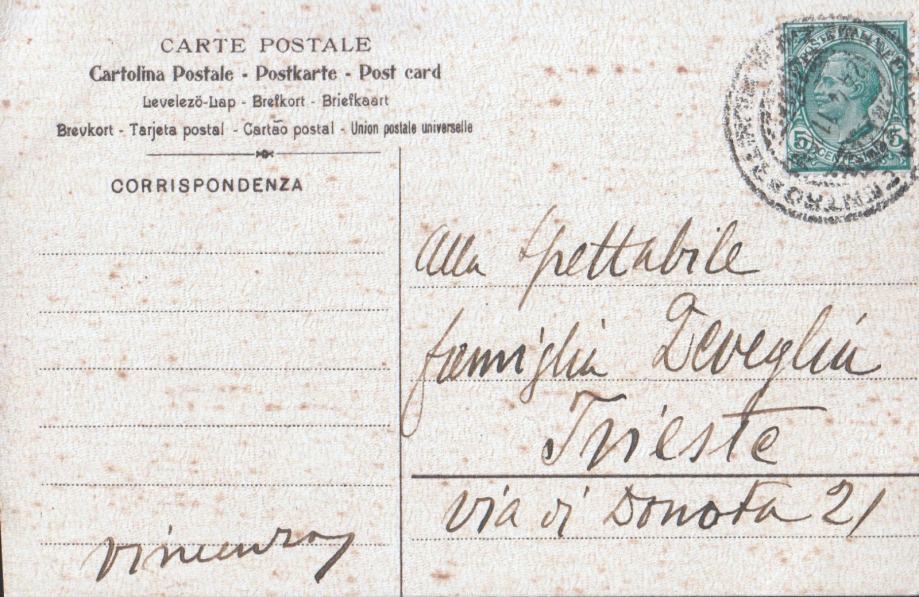 CARTE POSTALE
Cartolina Postale - Postkarte - Post card
Levelezö-Lap - Brefkort - Briefkaart
Brevkort - Tarjeta postal - Cartão postal - Union postale universelle
CORRISPONDENZA
POSTE ITALIANE
5 CENTESIMI 5
CENTRO
Alla Spettabile
famiglia Deveglia
Trieste
via di Donota 21
Vincenzo